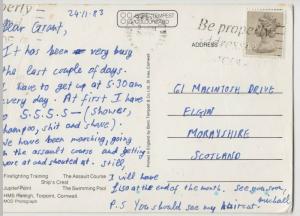 24-11-83
Dear Grant,
It has been very busy
the last couple of days.
I have to get up at 5.30am
every day. At first I have
to S.S.S.S - (shower,
shampoo, shit and shave).
We have been marching, going
on the assault course and getting
were at and shouted at. Still,
I will have
£150 at the end of the month. See you soon,
Michael.
P.S You should see my haircut.
Firefighting Training The Assault Course
Ship's Crest
Jupiter Point The Swimming Pool
HMS Raleigh, Torpoint, Cornwall.
MOD Photograph
Be prope
ADDRESS
61 MACINTOSH DRIVE
ELGIN
MORAYSHIRE
SCOTLAND